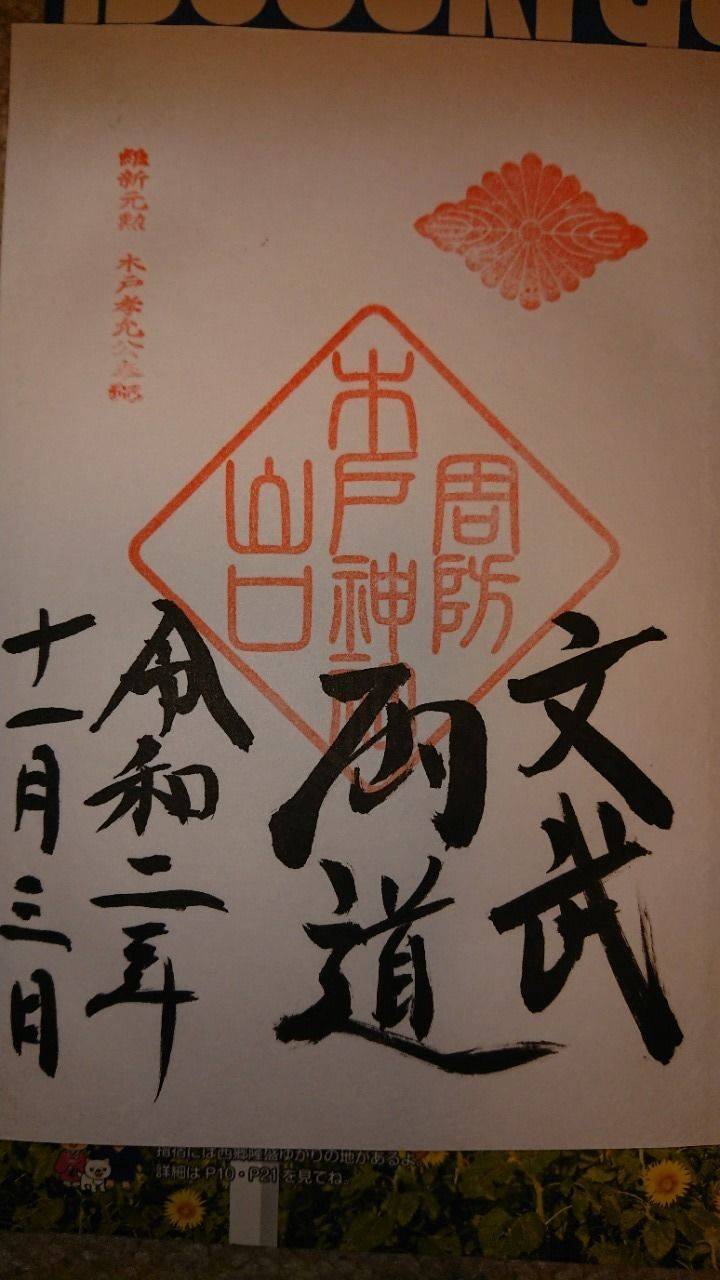 維新元勲 木戸孝允公
周防
木戸神社
山口
文武
両道
令和二年
十一月三日
指宿には西郷隆盛ゆかりの地があるよ
詳細は P10・P21を見てね。